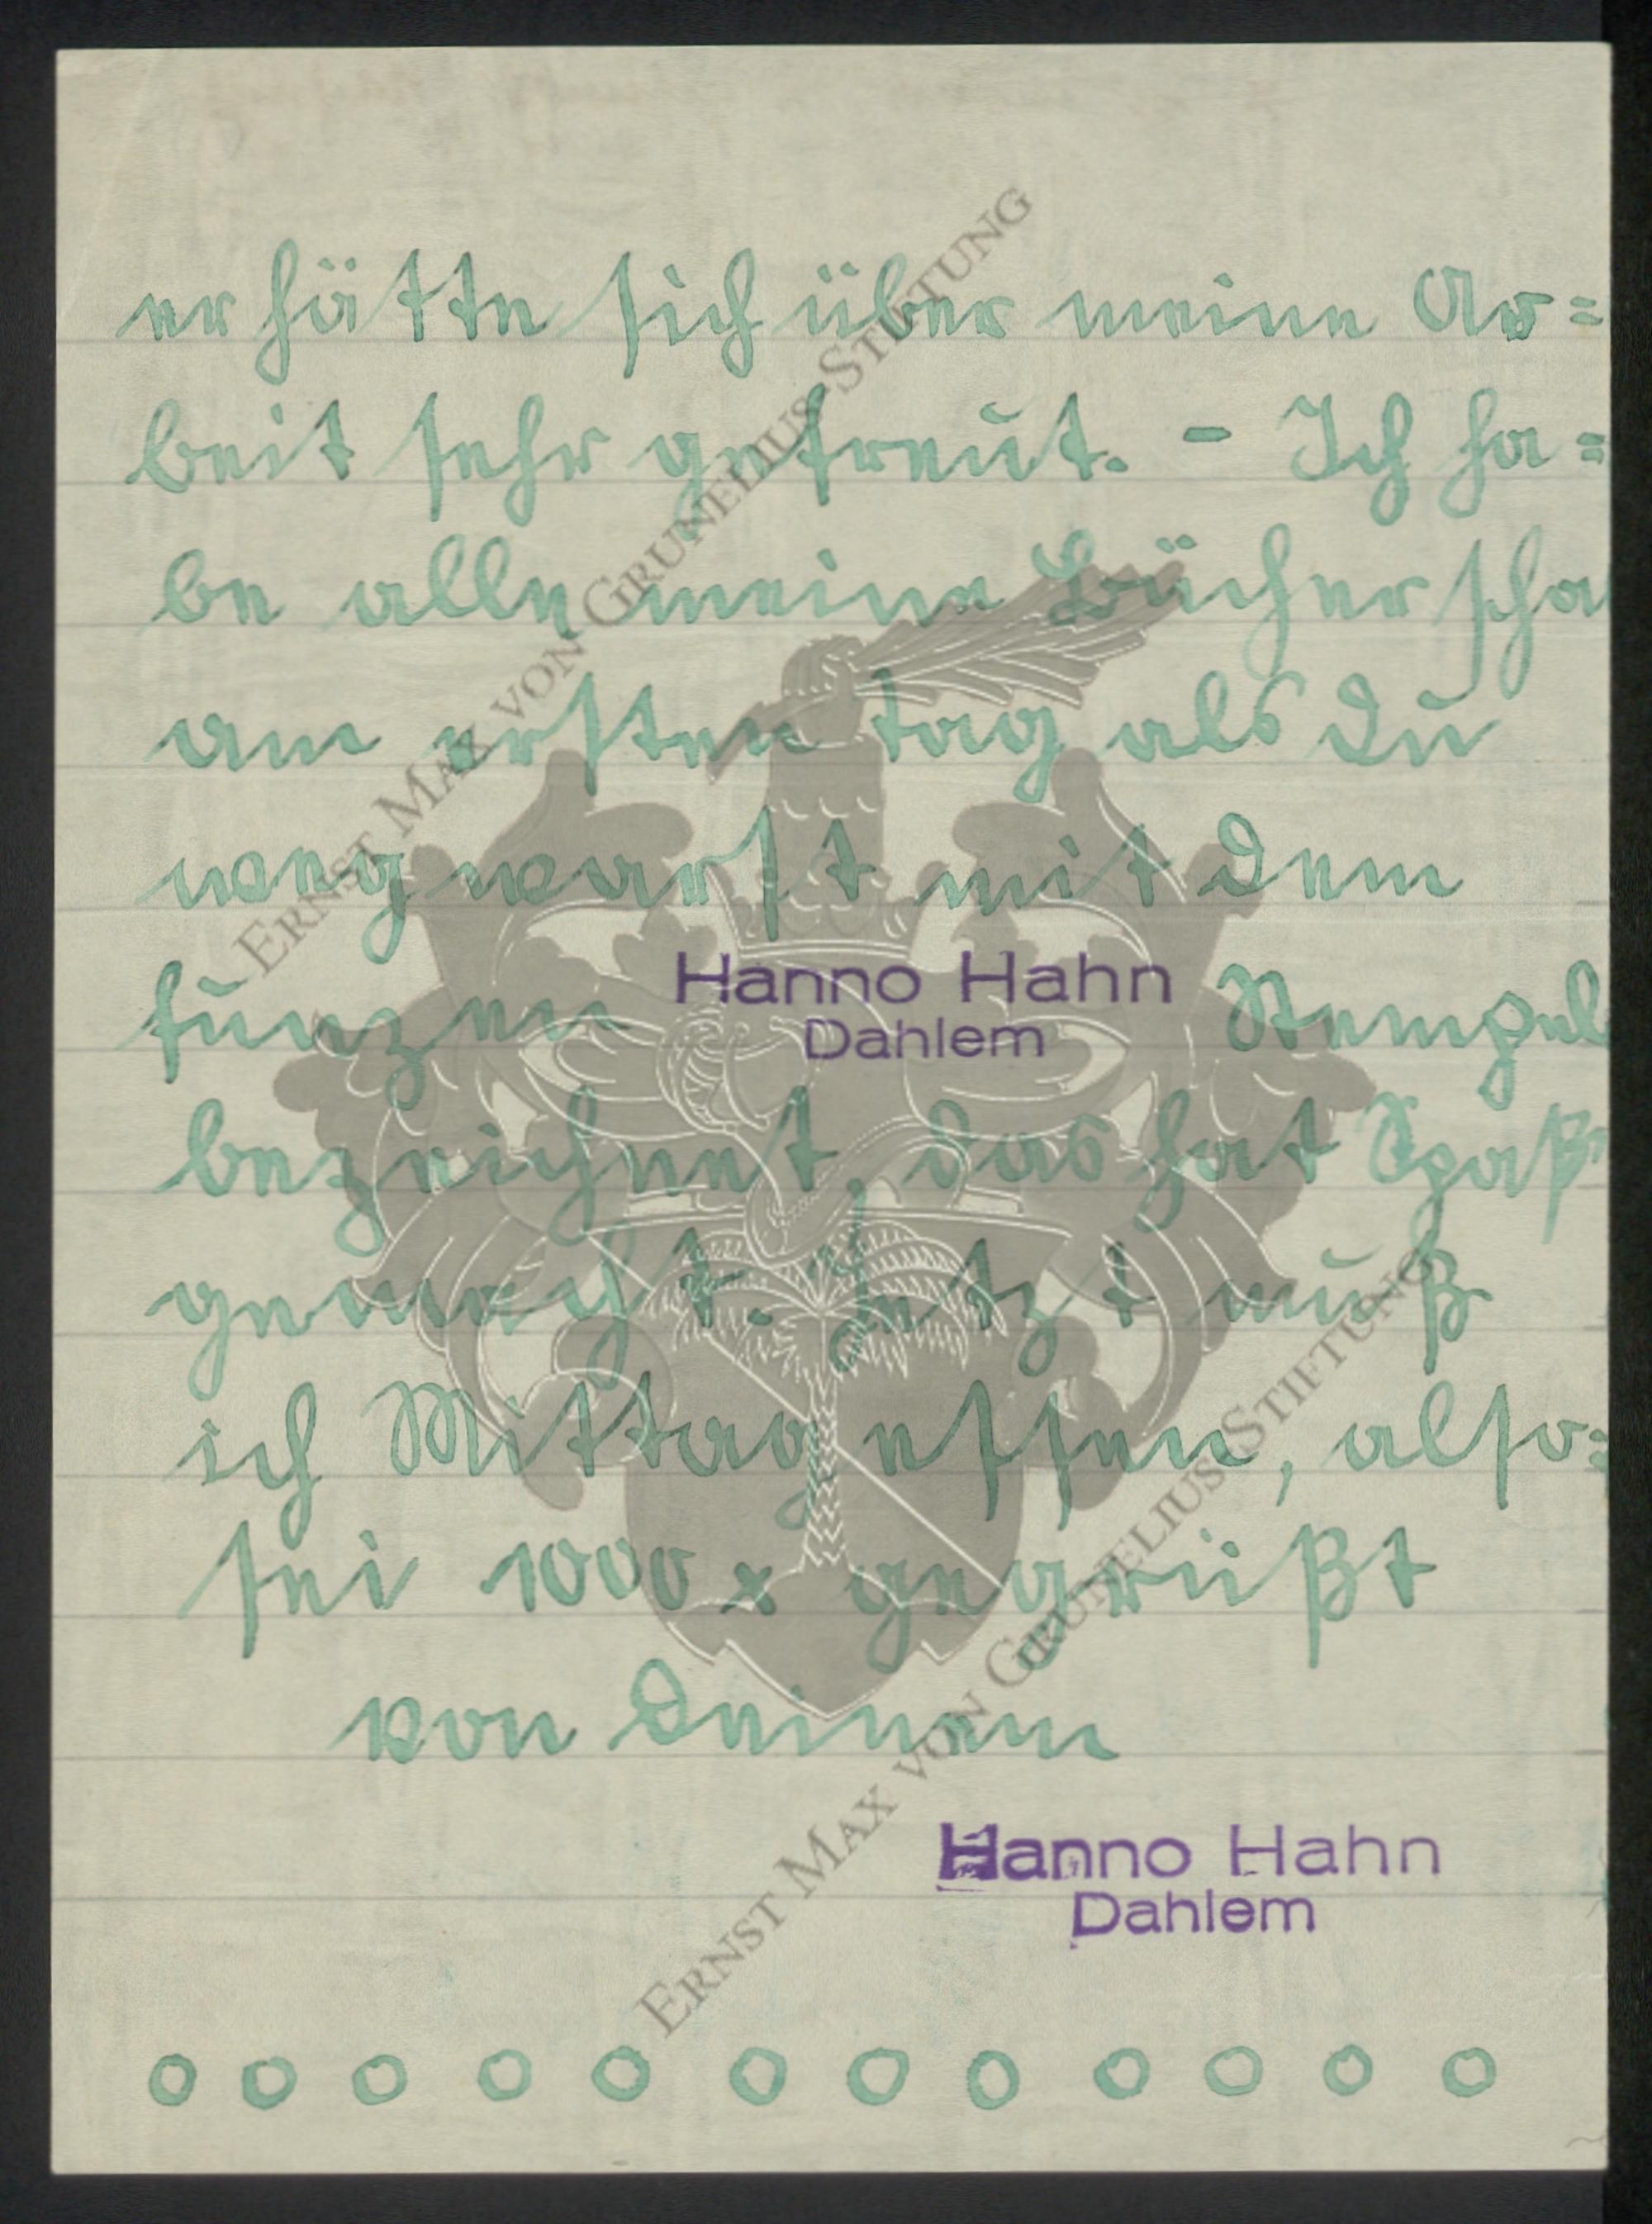 er hätte sich über meine Ar=
beit sehr gefreut. - Ich ha=
be alle meine Bücher scho
am ersten tag als Du
weg warst mit dem
Hanno Hahn
Dahlem
Stempel
bezeichnet, das hat Spaß
gemacht. Jetzt muß
ich Mittag essen, also:
sei 1000 x gegrüßt
von Deinem
Hanno Hahn
Dahlem
o o o o o o o o o o o o
ERNST MAX VON GRUNELIUS-STIFTUNG
ERNST MAX VON GRUNELIUS-STIFTUNG